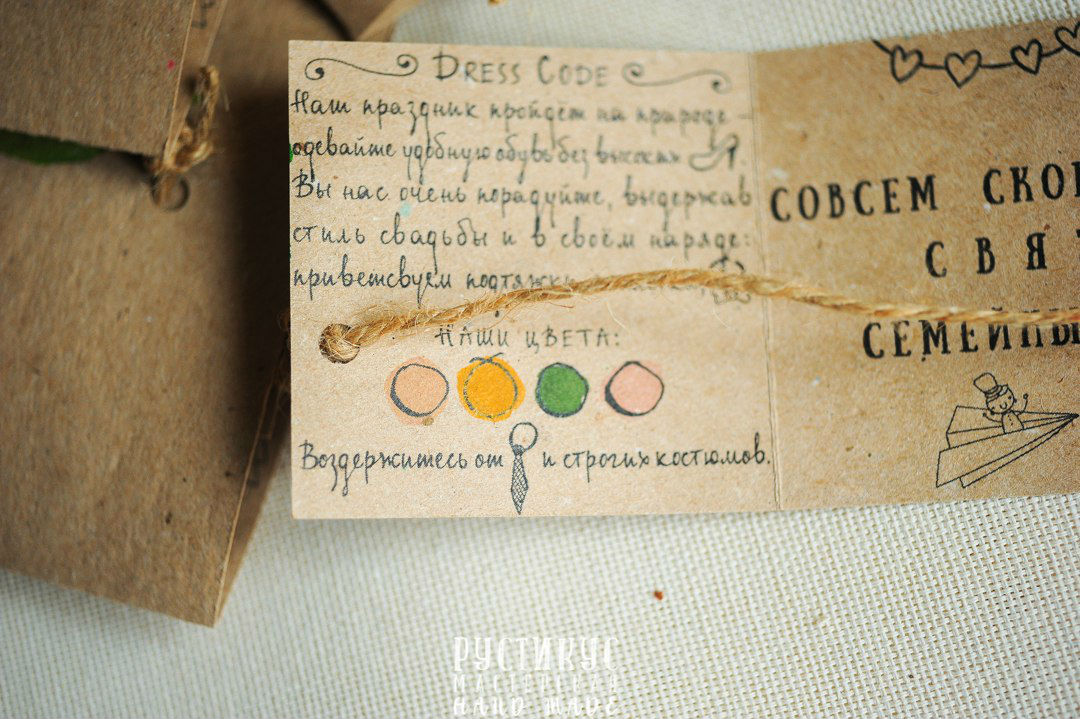 DRESS CODE
Наш праздник пройдёт на природе -
одевайте удобную обувь без высоких
Вы нас очень порадуйте, выдержав
стиль свадьбы и в своём наряде:
приветсвуем подтяжки
НАШИ ЦВЕТА:
Воздержитесь от и строгих костюмов.
СОВСЕМ СКО
СВЯ
СЕМЕЙНЫ
РУСТИКУС
МАСТЕРСКАЯ
HAND MADE